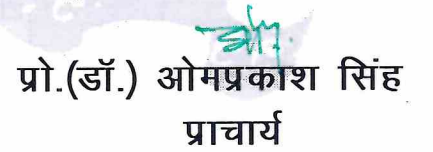 प्रो.(डॉ.) ओमप्रकाश सिंह
प्राचार्य